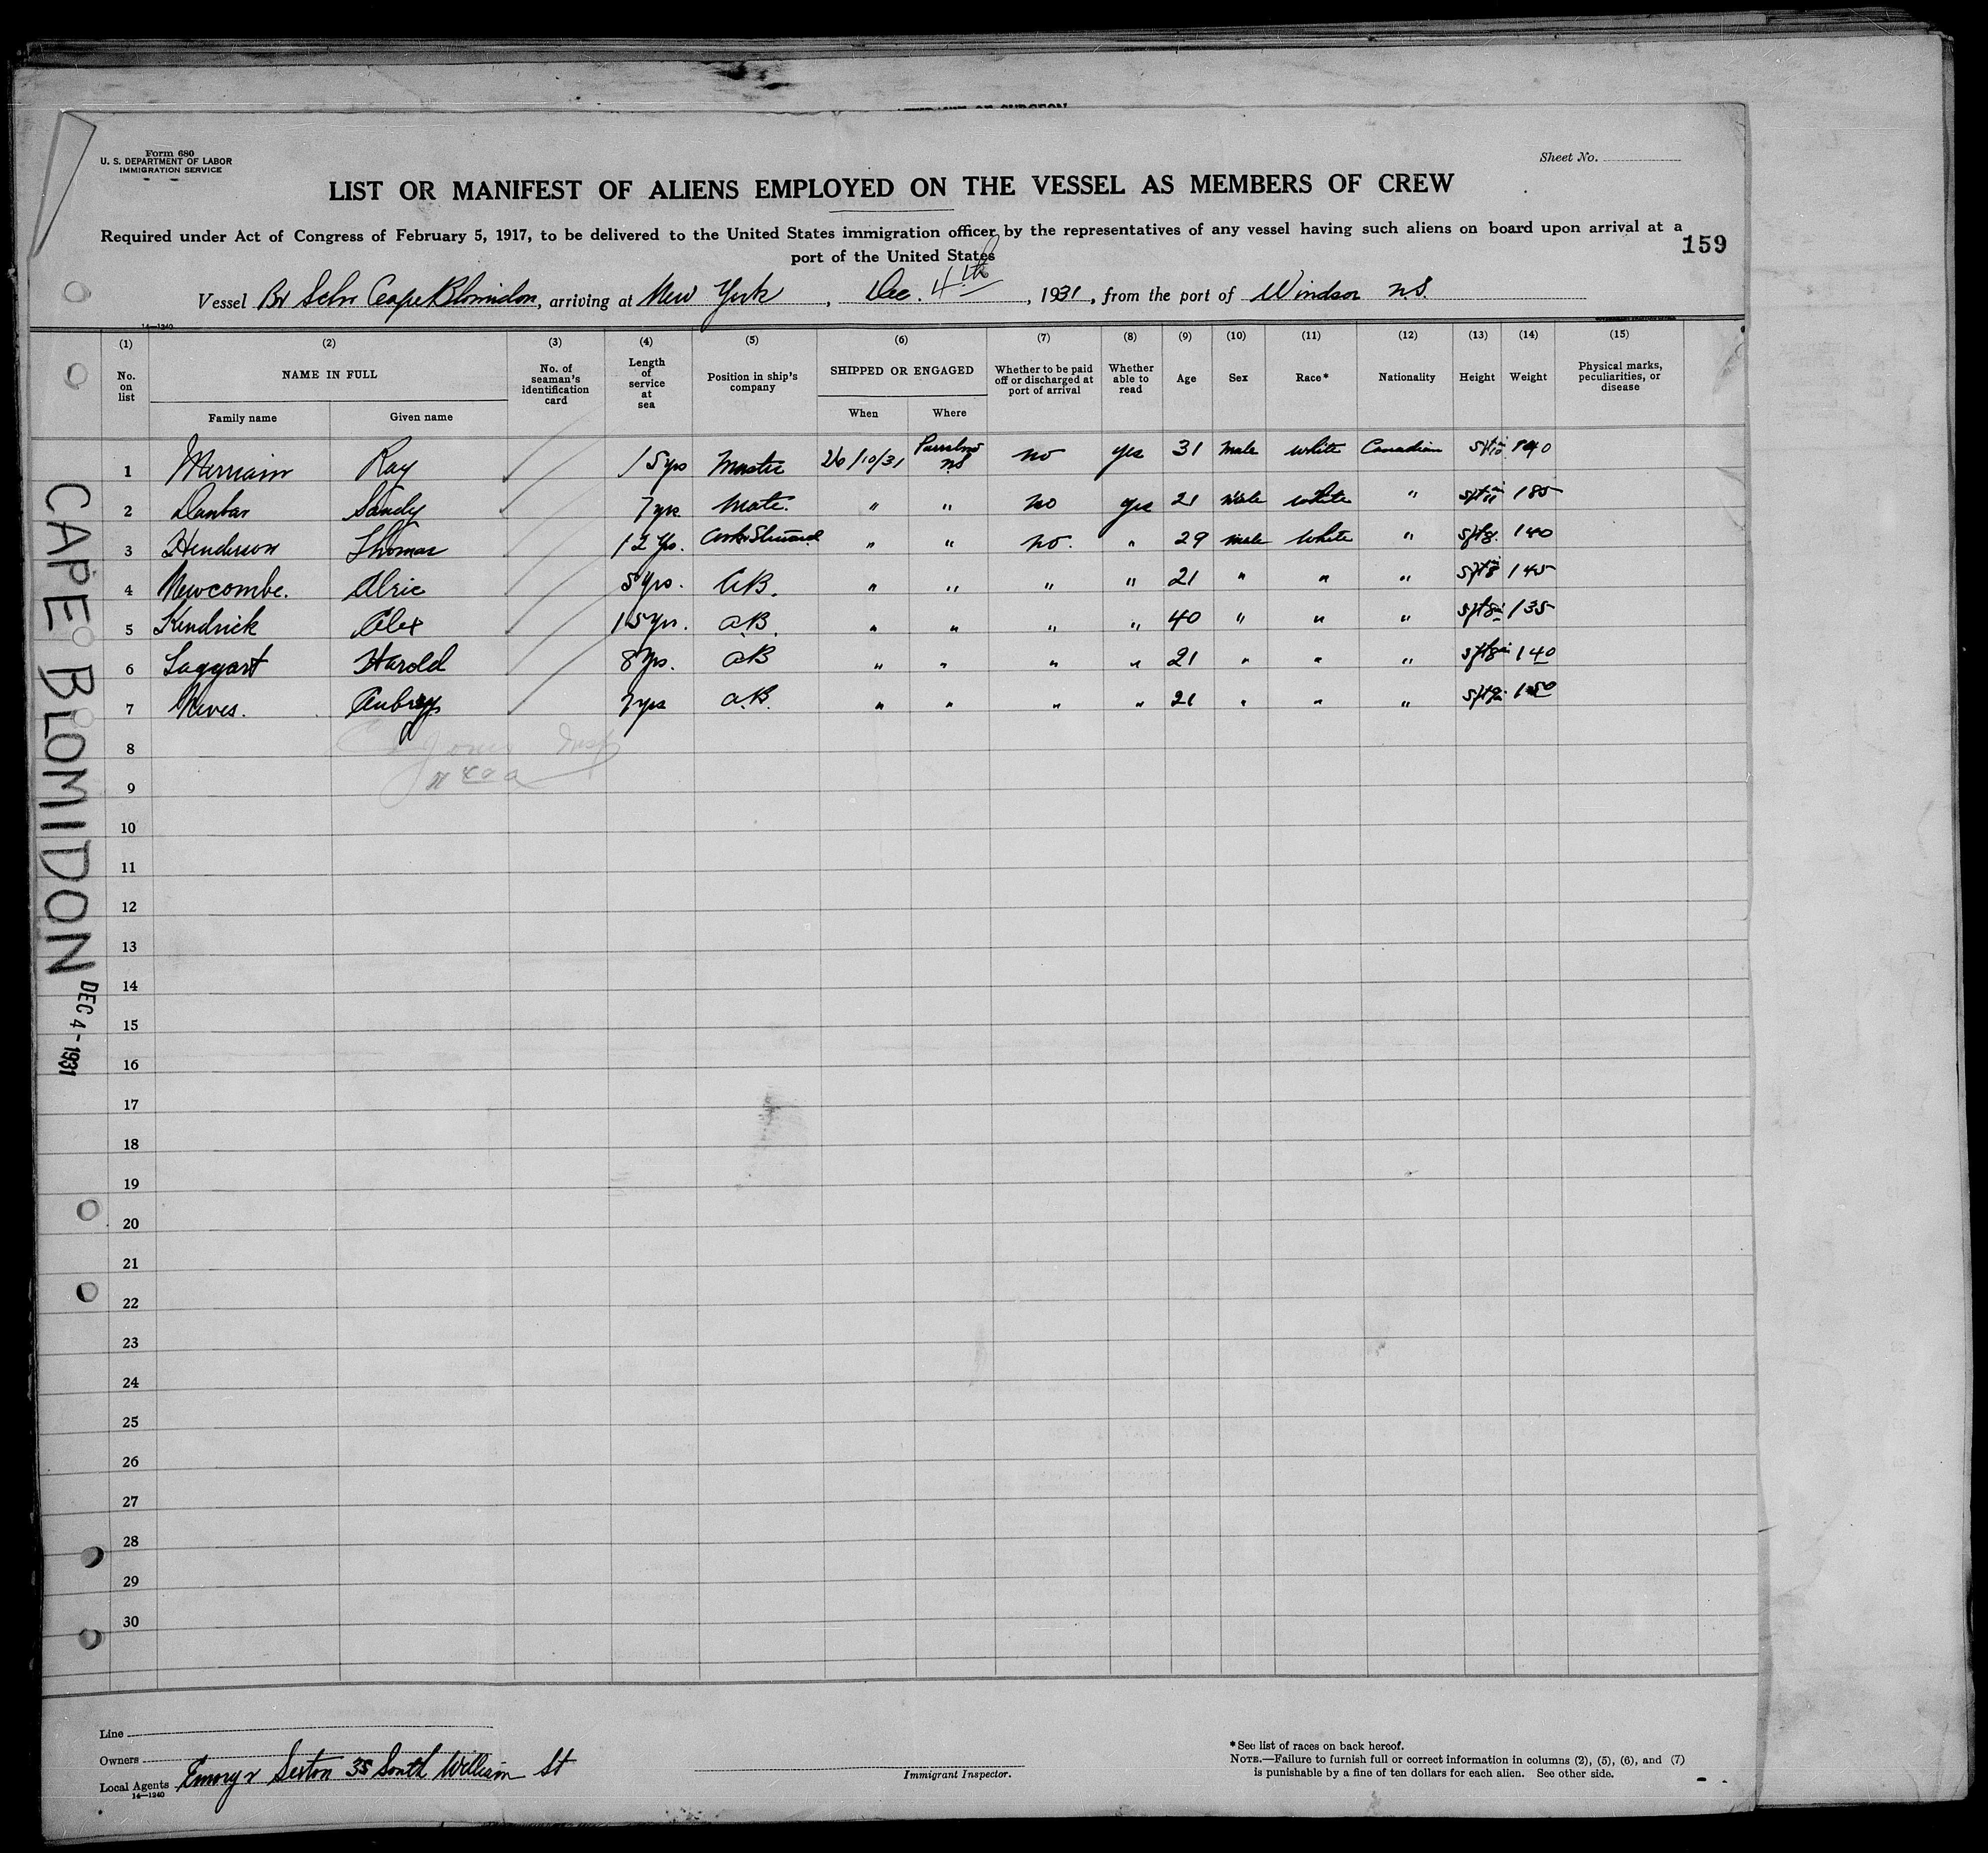 Form 680
U. S. DEPARTMENT OF LABOR
IMMIGRATION SERVICE
Sheet No.
LIST OR MANIFEST OF ALIENS EMPLOYED ON THE VESSEL AS MEMBERS OF CREW
Required under Act of Congress of February 5, 1917, to be delivered to the United States immigration officer by the representatives of any vessel having such aliens on board upon arrival at a
port of the United States
159
Vessel Br Schr Cape Blomidon, arriving at New York, Dec. 4th, 1931, from the port of Windsor N.S.
14—1240
(1) (2) (3) (4) (5) (6) (7) (8) (9) (10) (11) (12) (13) (14) (15)
No. on list NAME IN FULL No. of seaman's identification card Length of service at sea Position in ship's company SHIPPED OR ENGAGED Whether to be paid off or discharged at port of arrival Whether able to read Age Sex Race* Nationality Height Weight Physical marks, peculiarities, or disease
Family name Given name When Where
1 Merriam Ray 15 yrs Master 26/10/31 NS no yes 31 male white Canadian 5ft10in 140
2 Dunbar Sandy 7 yrs. Mate. " " no yes 21 male white " 5ft11in 185
3 Henderson Thomas 12 Yrs. Cook+Steward " " no. " 29 male white " 5ft8. 140
4 Newcombe. Alric 5 Yrs. A.B. " " " " 21 " " " 5ft8in 145
5 Kendrick Alex 15 yrs. a.B. " " " " 40 " " " 5ft8in 135
6 Taggart Harold 8 Yrs. a.B " " " " 21 " " " 5ft8in 140
7 Neves. Aubrey 7 yrs a.B. " " " " 21 " " " 5ft9in 150
8
9
10
11
12
13
14
15
16
17
18
19
20
21
22
23
24
25
26
27
28
29
30
CAPE BLOMIDON
DEC 4 - 1931
Line
Owners
Local Agents Emory & Sexton 35 South William St
14—1240
Immigrant Inspector.
*See list of races on back hereof.
NOTE.—Failure to furnish full or correct information in columns (2), (5), (6), and (7)
is punishable by a fine of ten dollars for each alien. See other side.